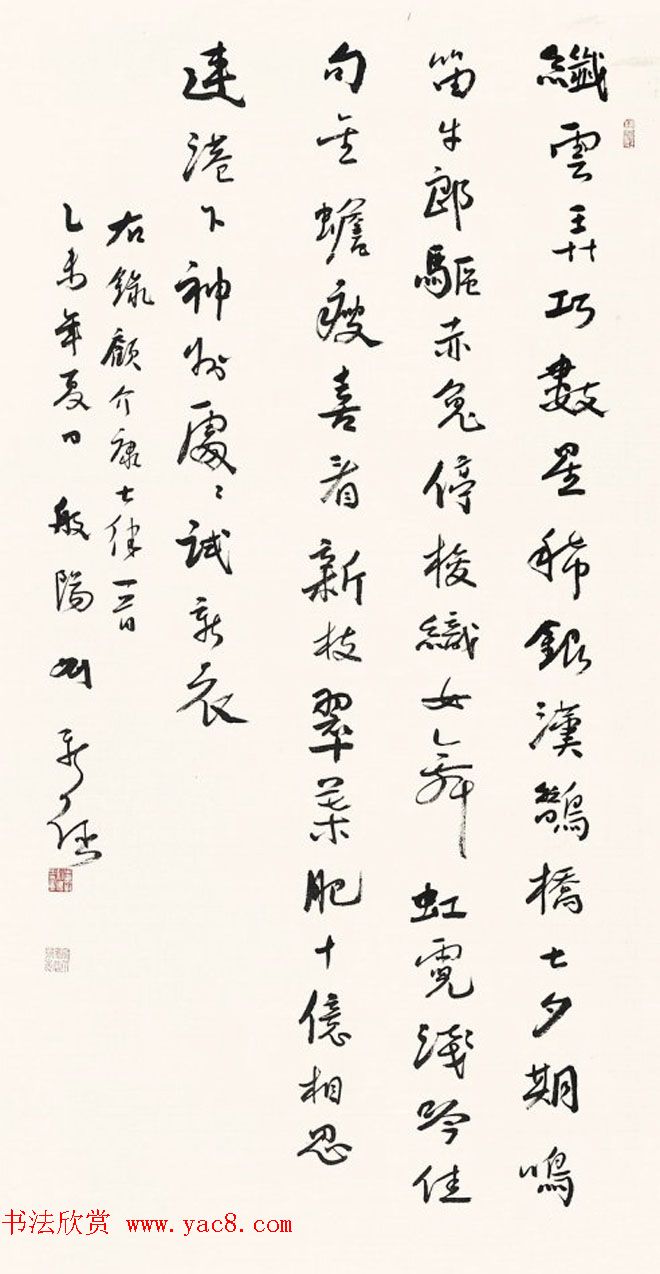 纖雲弄巧數星稀銀漢鵲橋七夕期鳴
笛牛郎驅赤兔停梭織女舞虹霓淺吟佳
句蟾瘦喜看新枝翠葉肥十億相思
連港下神州處〻試新衣
右錄顧介康七律一首
乙未年夏日般陽劉新
书法欣赏 www.yac8.com